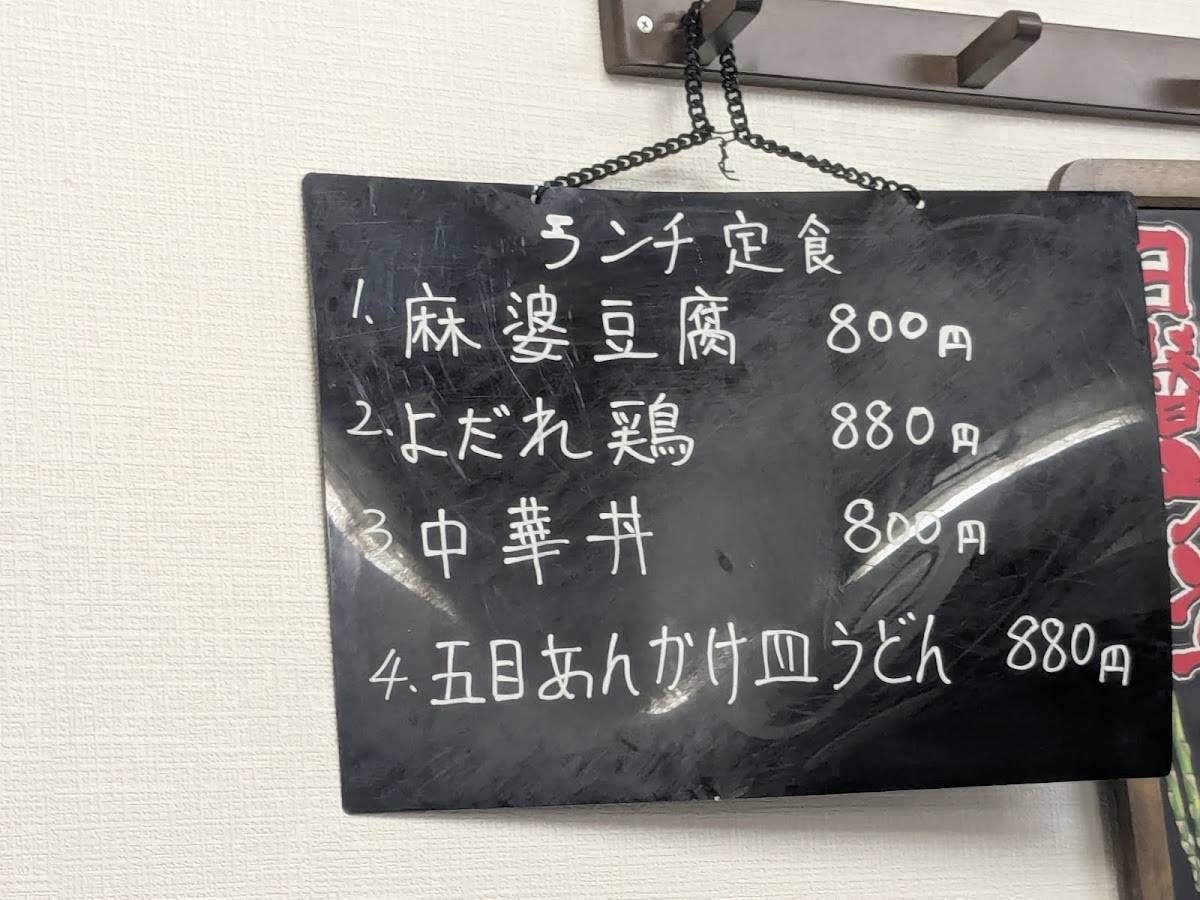 ランチ定食
1. 麻婆豆腐 800円
2. よだれ鶏 880円
3 中華丼 800円
4. 五目あんかけ皿うどん 880円